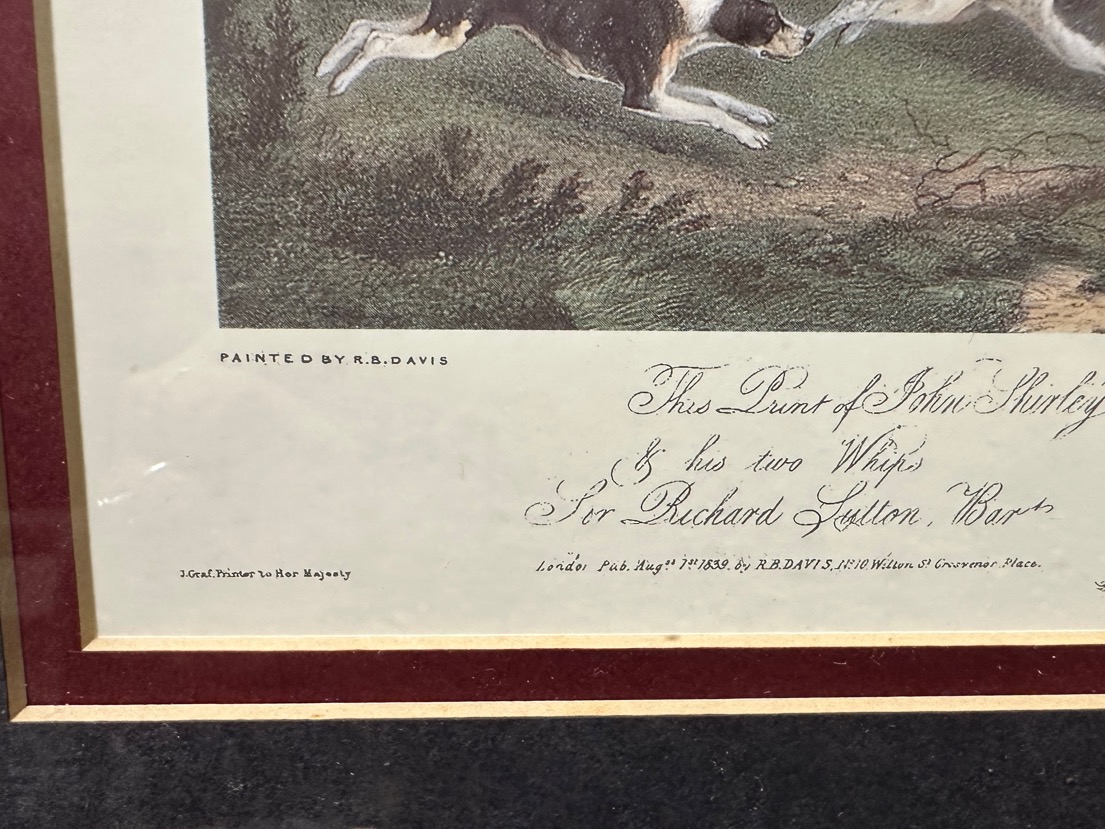 PAINTED BY R.B.DAVIS
This Print of John Shirley
& his two Whips
Sor Richard Sutton, Bart
London Pub. Augst 1st 1839. by R.B.DAVIS, No 10 Wilton St Grosvenor Place.
J.Graf, Printer to Her Majesty